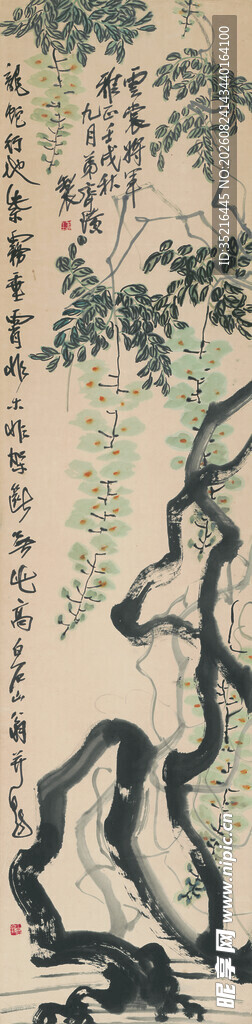 雲裳將軍
雅正壬戌秋
九月弟齊璜
製
龍蛇行地紫霧垂霄非
木非架斷無此高白石山翁并
ID:35216445 NO:20260824143440164100
昵享网 www.nipic.cn